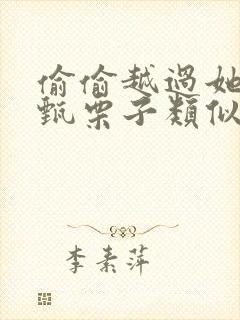 偷偷越過她
甄栗子類似
李素萍